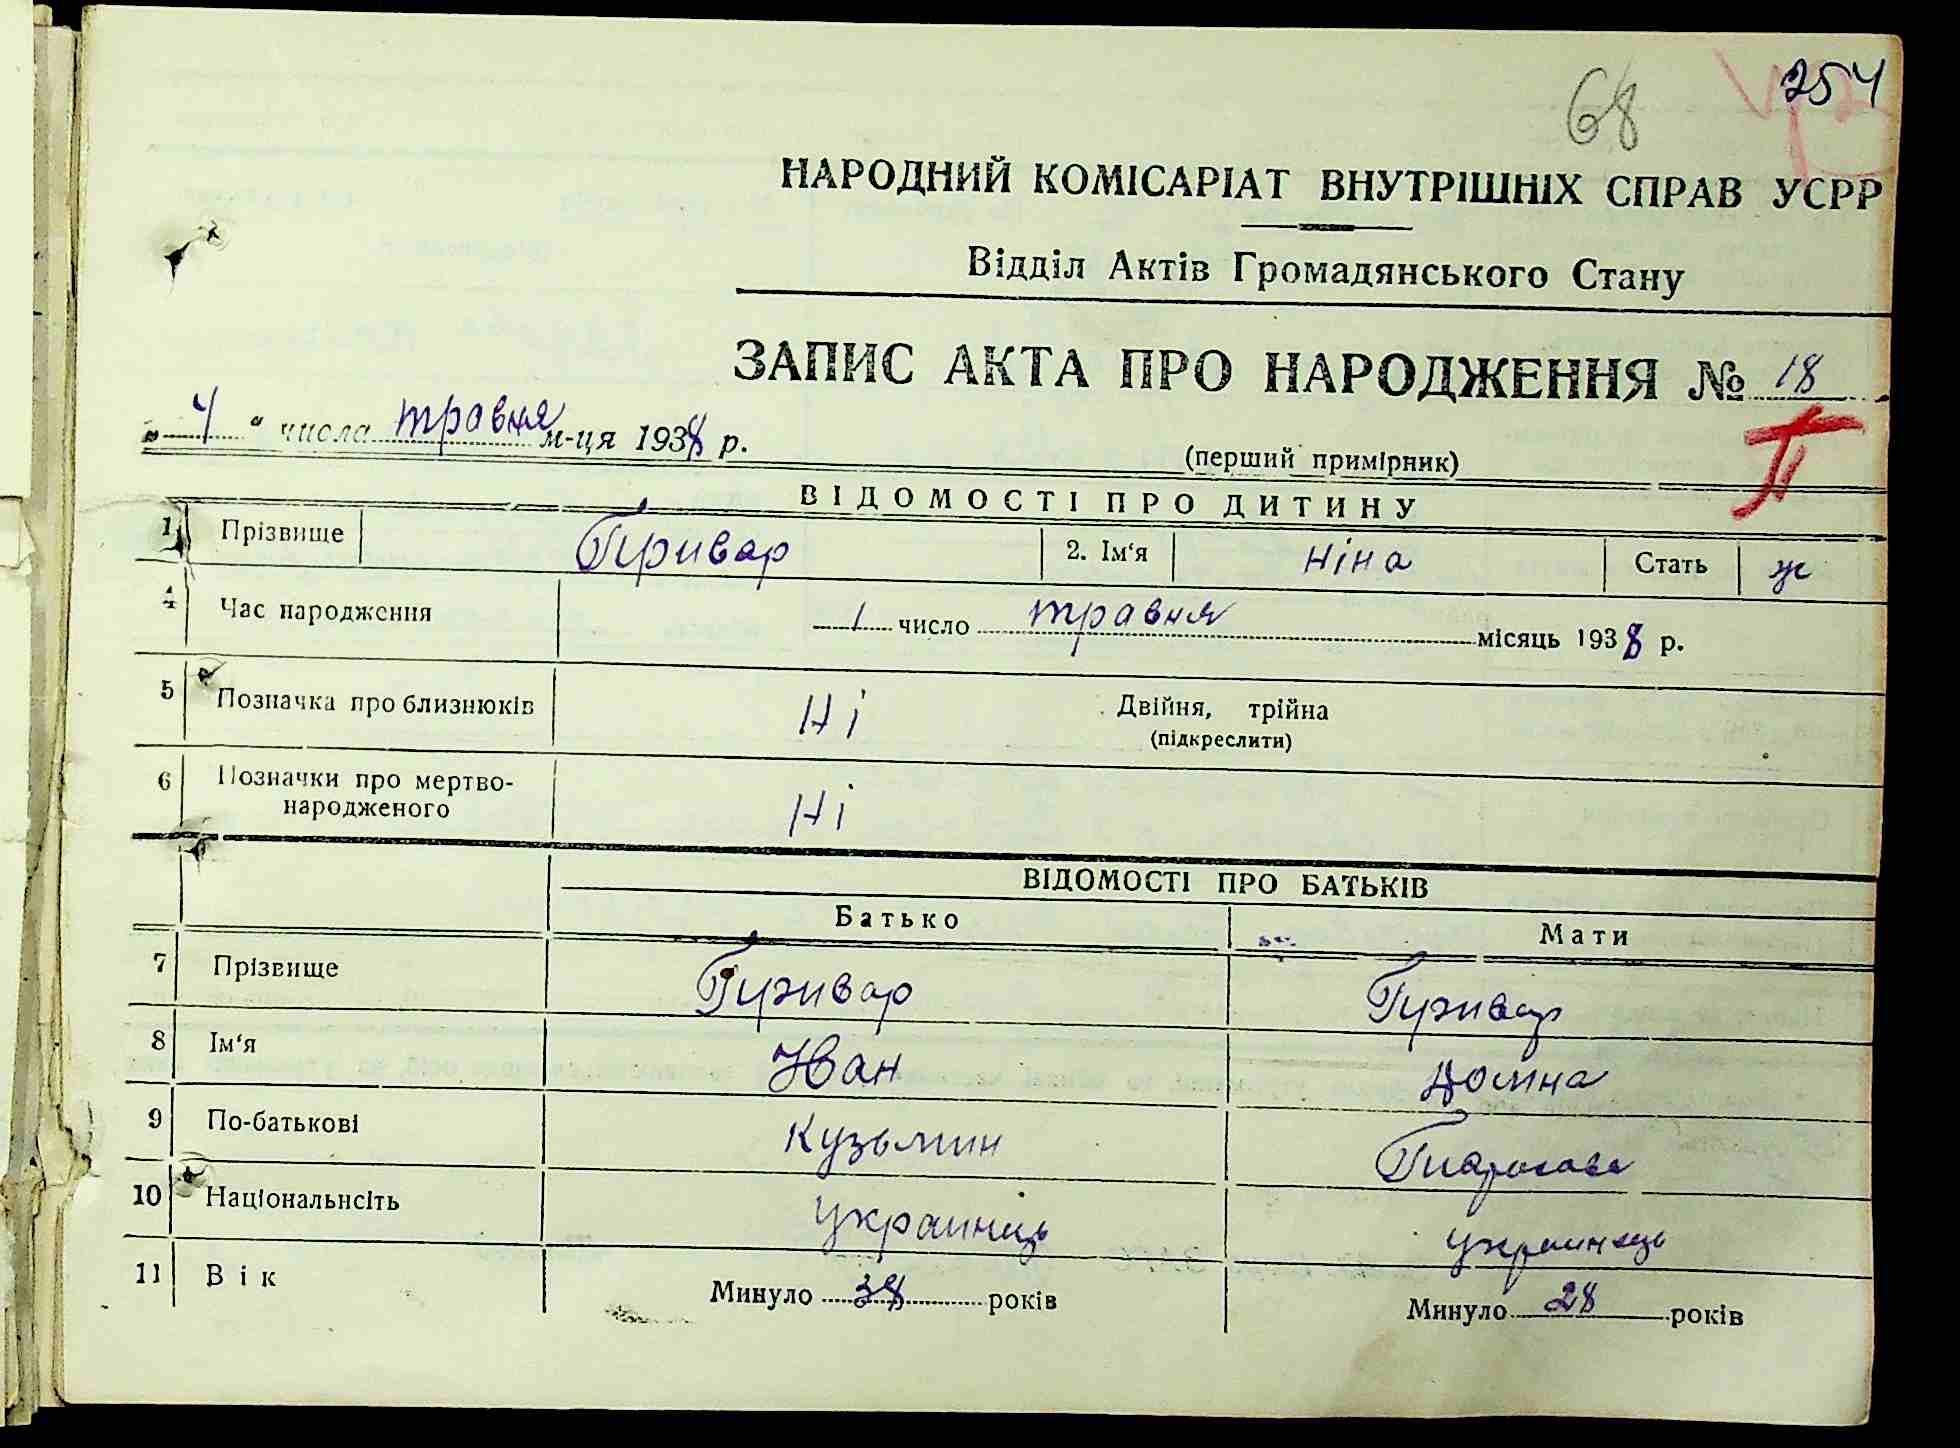 254
68
НАРОДНИЙ КОМІСАРІАТ ВНУТРІШНІХ СПРАВ УСРР
Відділ Актів Громадянського Стану
ЗАПИС АКТА ПРО НАРОДЖЕННЯ № 18
„ 4 “ числа травня м-ця 1938 р.
(перший примірник)
II
ВІДОМОСТІ ПРО ДИТИНУ
1 Прізвище 2. Ім‘я Ніна Стать ж
4 Час народження 1 число травня місяць 1938 р.
5 Позначка про близнюків Ні Двійня, трійна
(підкреслити)
6 Позначки про мертво-
народженого Ні
ВІДОМОСТІ ПРО БАТЬКІВ
Батько Мати
7 Прізвище
8 Ім‘я Иван Домна
9 По-батькові Кузьмин
10 Національнсіть
11 Вік Минуло 38 років Минуло 28 років